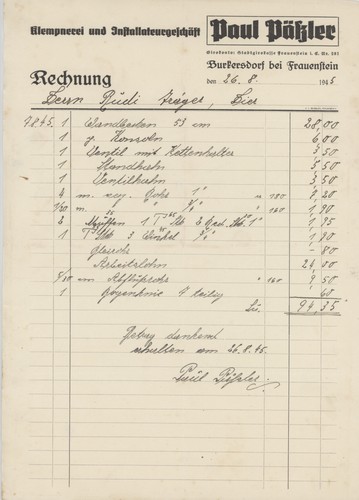 Klempnerei und Installateurgeschäft Paul Päßler
Girokonto: Stadtgirokasse Frauenstein i. E. Nr. 291
Burkersdorf bei Frauenstein
Rechnung den 26.8. 1945
Herrn Rudi Träger, Hier
7.8.45. 1 Wandbecken 53 cm 28,00
1 p. Konsoln 6,00
1 Ventil mit Kettenhalter 3,50
1 Standhahn 5,50
1 Ventilhahn 3,50
4 m. Rohr 1" " 180 8,20
m. " 3/4" " 160 1,90
Muffen 1 1,95
1 3 Winkel 3/4" 1,90
-80
Arbeitslohn 24,00
m Abflußrohr " 160 9,50
1 teilig -60
Su. 94,35
Betrag dankend
erhalten am 26.8.45.
Paul Päßler